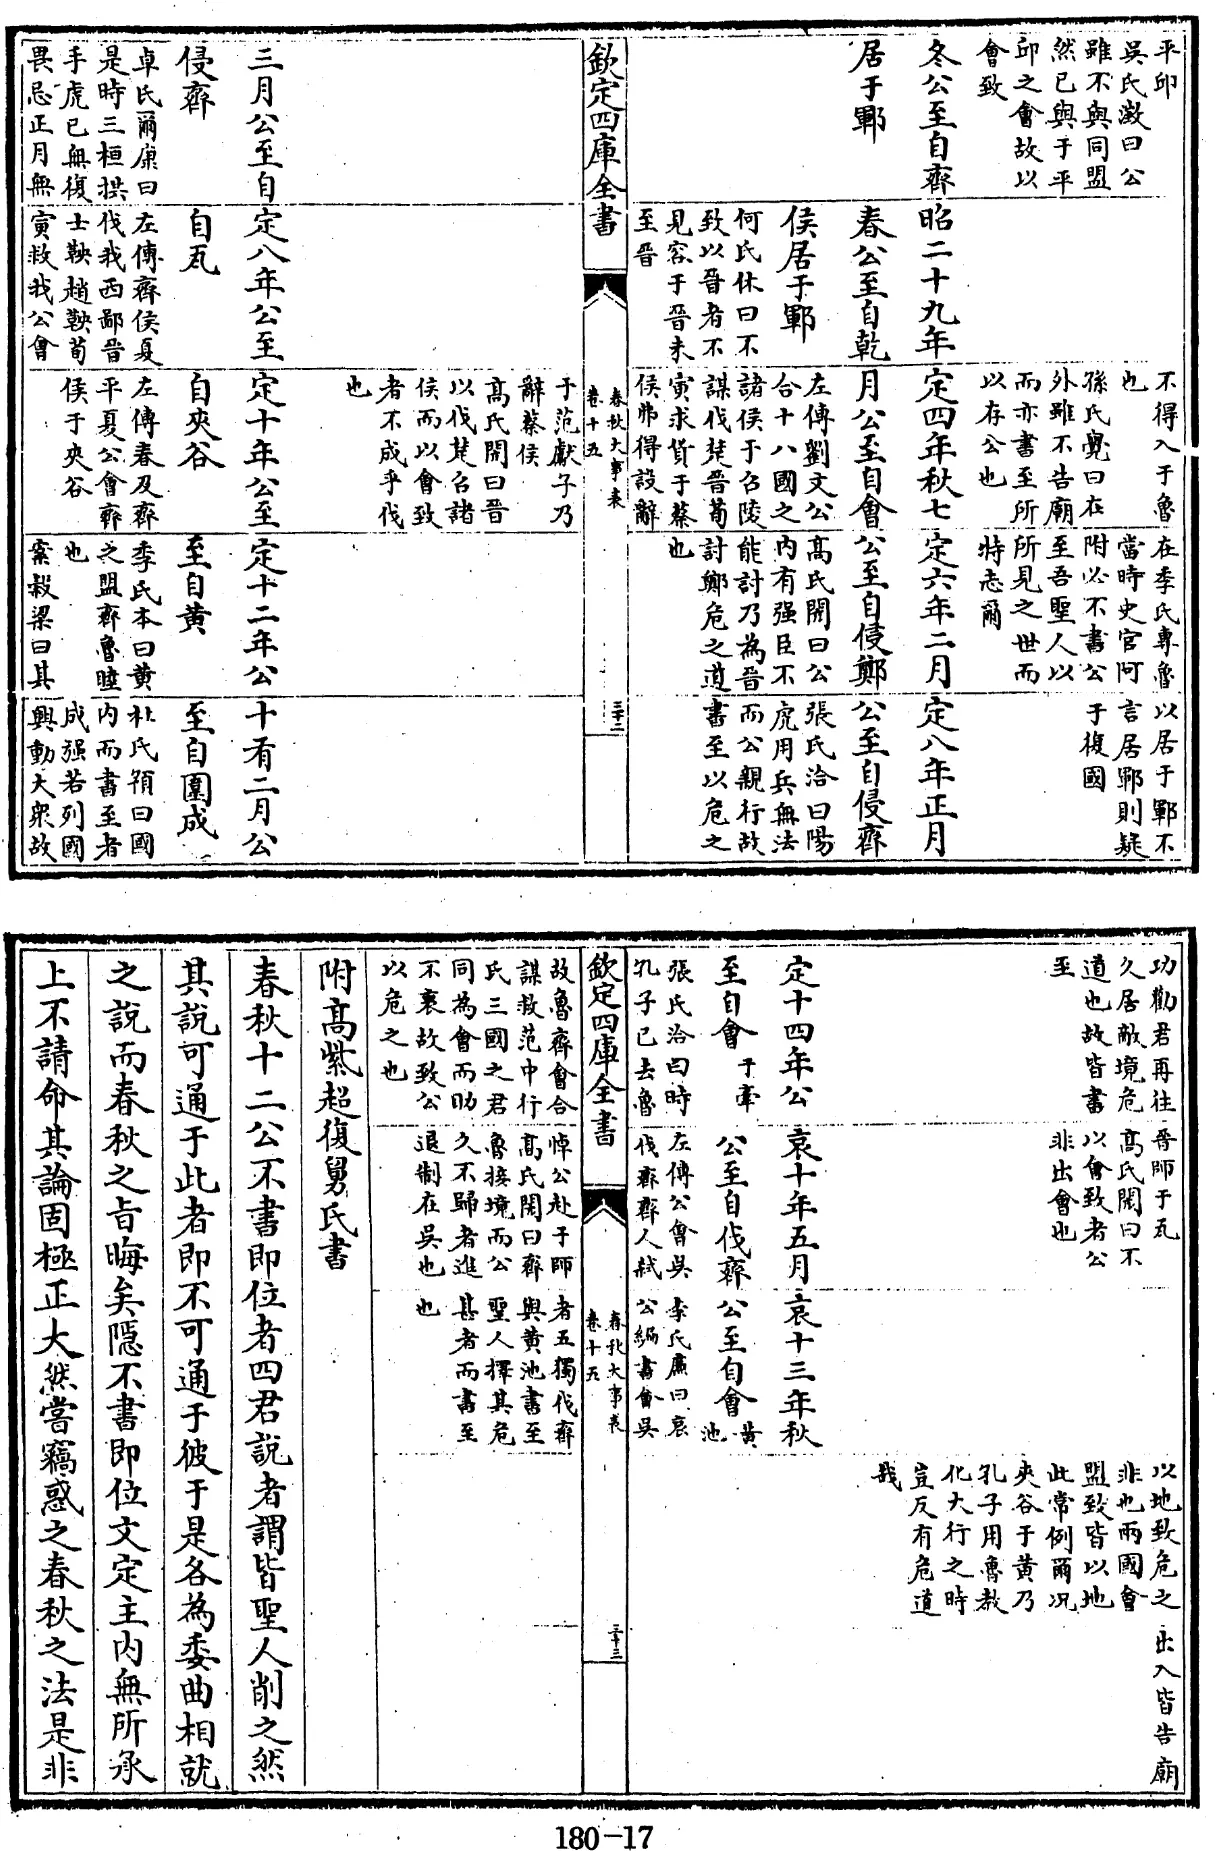 平邱
吳氏澂曰公
雖不與同盟
然已與于平
邱之會故以
會致
冬公至自齊
居于鄆
昭二十九年
春公至自乾
侯居于鄆
何氏休曰不
致以晉者不
見容于晉未
至晉
不得入于魯
也
孫氏覺曰在
外雖不告廟
而亦書至所
以存公也
定四年秋七
月公至自會
左傳劉文公
合十八國之
諸侯于召陵
謀伐楚晉荀
寅求貨于蔡
侯弗得設辭
在季氏專魯
當時史官阿
附必不書公
至吾聖人以
所見之世而
特志爾
定六年二月
公至自侵鄭
髙氏閌曰公
内有强臣不
能討乃為晉
討鄭危之道
也
以居于鄆不
言居鄆則疑
于復國
定八年正月
公至自侵齊
張氏洽曰陽
虎用兵無法
而公親行故
書至以危之
欽定四庫全書
春秋大事表
卷十五
三十二
三月公至自
侵齊
卓氏爾康曰
是時三桓拱
手虎已無復
畏忌正月無
定八年公至
自瓦
左傳齊侯夏
伐我西鄙晉
士鞅趙鞅荀
寅救我公會
于范獻子乃
辭蔡侯
髙氏閌曰晉
以伐楚召諸
侯而以會致
者不成乎伐
也
定十年公至
自夾谷
左傳春及齊
平夏公會齊
侯于夾谷
定十二年公
至自黄
李氏本曰黄
之盟齊魯睦
也
案穀梁曰其
十有二月公
至自圍成
杜氏預曰國
内而書至者
成强若列國
興動大衆故
功勸君再往
久居敵境危
道也故皆書
至
定十四年公
至自會于牽
張氏洽曰時
孔子已去魯
晉師于瓦
髙氏閌曰不
以會致者公
非出會也
哀十年五月
公至自伐齊
左傳公會吳
伐齊齊人弑
哀十三年秋
公至自會黄池
李氏廉曰哀
公編書會吳
以地致危之
非也兩國會
盟致皆以地
此常例爾况
夾谷于黄乃
孔子用魯教
化大行之時
豈反有危道
哉
出入皆告廟
欽定四庫全書
春秋大事表
卷十五
三十三
故魯齊會合
謀救范中行
氏三國之君
同為會而助
不衷故致公
以危之也
悼公赴于師
髙氏閌曰齊
魯接境而公
久不歸者進
退制在吳也
者五獨伐齊
與黄池書至
聖人擇其危
甚者而書至
也
附髙紫超復舅氏書
春秋十二公不書即位者四君説者謂皆聖人削之然
其説可通于此者即不可通于彼于是各為委曲相就
之説而春秋之旨晦矣隱不書即位文定主内無所承
上不請命其論固極正大然嘗竊惑之春秋之法是非
180-17